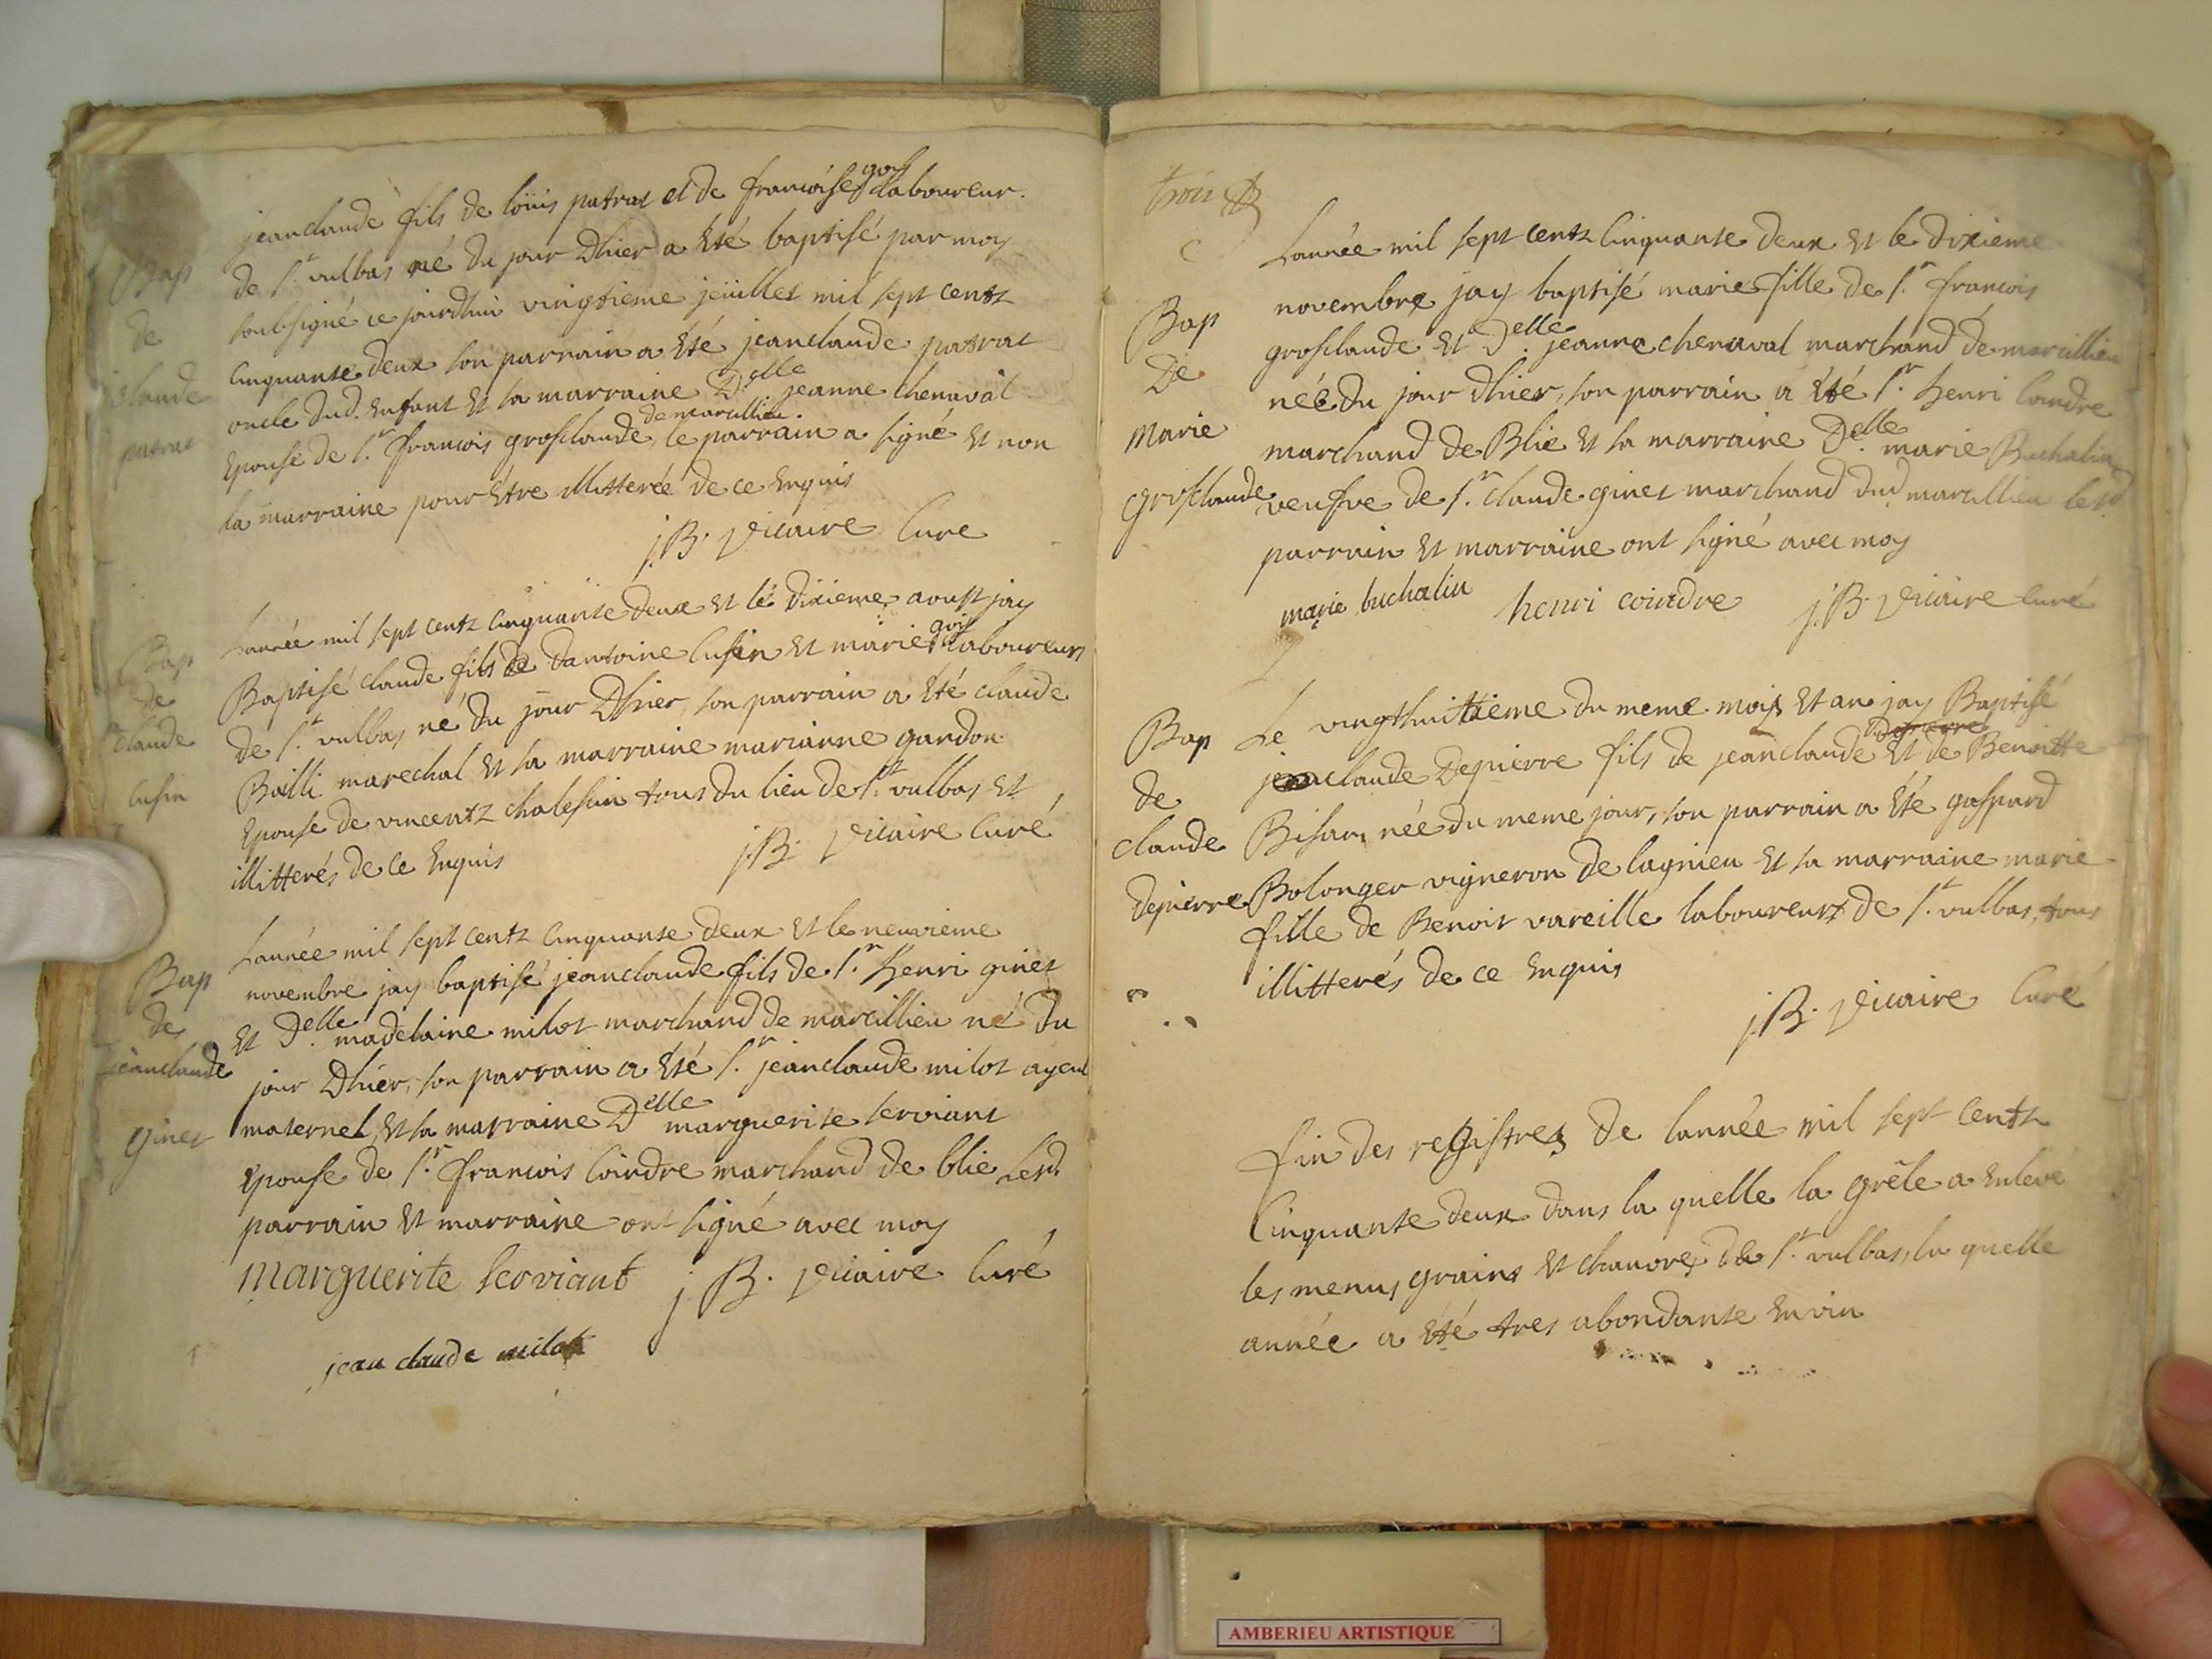 Bap
de
claude
patrat
jeanclaude fils de loüis patrat et de francoise goy laboureur.
de st. vulbas né du jour Dhier a été baptisé par moy
soubsigné ce jourdhui vingtieme jeüillet mil sept centz
cinquante deux son parrain a été jeanclaude patrat
oncle dud. enfant et sa marraine Delle jeanne chenaval
Epouse de sr. francois grosclaude de marcillieu. le parrain a signé et non
la marraine pour être illitterée de ce enquis
j.B. vicaire Curé
Bap
de
claude
cusin
Lannée mil sept centz cinquante deux et le dixieme aoust jay
Baptisé claude fils de dantoine Cusin et marie goy laboureurs
de st. vulbas né du jour Dhier, son parrain a été claude
Bailli marechal et sa marraine marianne gandon
Epouse de vincentz chalesin tous du lieu de st. vulbas et
illitterés de ce enquis
j.B. vicaire Curé
Bap
de
jeanclaude
ginet
Lannée mil sept centz cinquante deux et le neuvieme
novembre jay baptisé jeanclaude fils de sr. henri ginet
et Delle. madelaine milot marchand de marcillieu né du
jour Dhier, son parrain a été sr. jeanclaude milot ayeul
maternel, et sa marraine Delle marguerite serviant
Epouse de sr. francois Coindre marchand de blie Lesd.
parrain et marraine ont signé avec moy
marguerite serviant j.B. vicaire Curé
jean claude milot
trois
Bap
De
marie
grosclaude
Lannée mil sept centz cinquante deux et le dixieme
novembre jay baptisé marie fille de sr. francois
grosclaude et Delle. jeanne chenaval marchand de marcillieu
née du jour dhier, son parrain a été sr. henri Coindre
marchand de Blie et sa marraine Delle. marie Buchalin
veufve de sr. claude ginet marchand dud. marcillieu lesd.
parrain et marraine ont signé avec moy
marie buchalin henri coindre j.B. vicaire Curé
Bap
de
claude
depierre
Le vingthuitieme du meme mois et an jay Baptisé
jeanclaude Depierre fils de jeanclaude Depierre et de Benoitte
née du meme jour, son parrain a été gaspard
Bolonger vigneron de lagnieu et sa marraine marie
fille de Benoit vareille laboureur de st. vulbas, tous
illitterés de ce enquis
j.B. vicaire Curé
fin des registres de lannée mil sept centz
Cinquante deux dans la quelle la grêle a enlevé
les menus grains et chanvres de st. vulbas, la quelle
année a été tres abondante en vin
AMBERIEU ARTISTIQUE